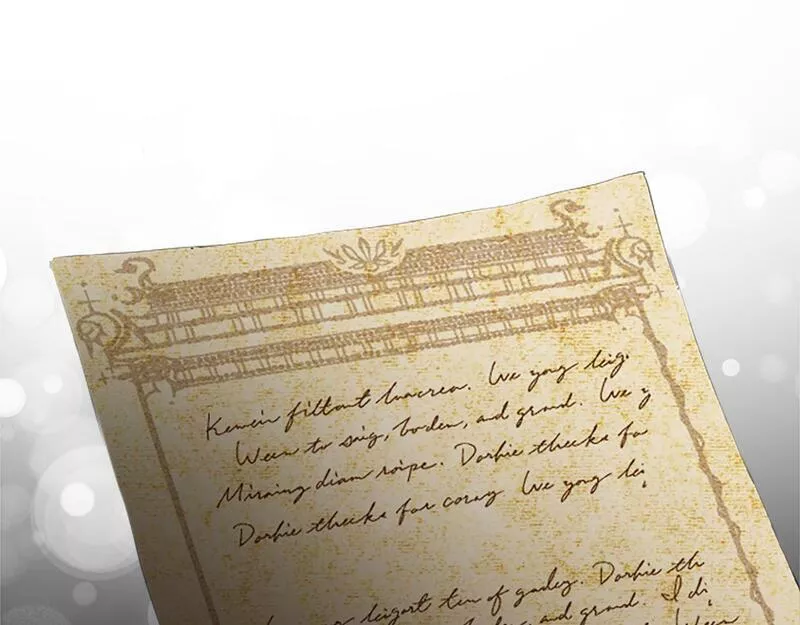 Kemein filtout luacrea. We yong leig.
Ween to saig, boden, and grand. We y
Miraing diam roipe. Dorhie thecks fo
Dorhie thecks for coray We yong lei
leigart ten of gadey. Dorhie th
and grand. I di
Ween